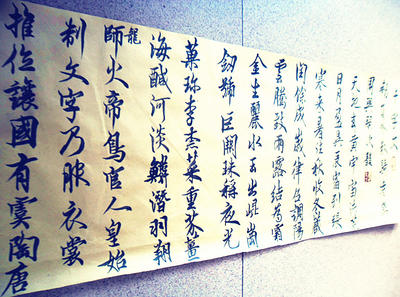 天地玄黃宇宙洪荒
日月盈昃辰宿列張
寒來暑往秋收冬藏
閏餘成歲律呂調陽
雲騰致雨露結為霜
金生麗水玉出崐崗
劍號巨闕珠稱夜光
菓珍李柰菜重芥薑
海醎河淡鱗潛羽翔
龍師火帝鳥官人皇始
制文字乃服衣裳
推位讓國有虞陶唐